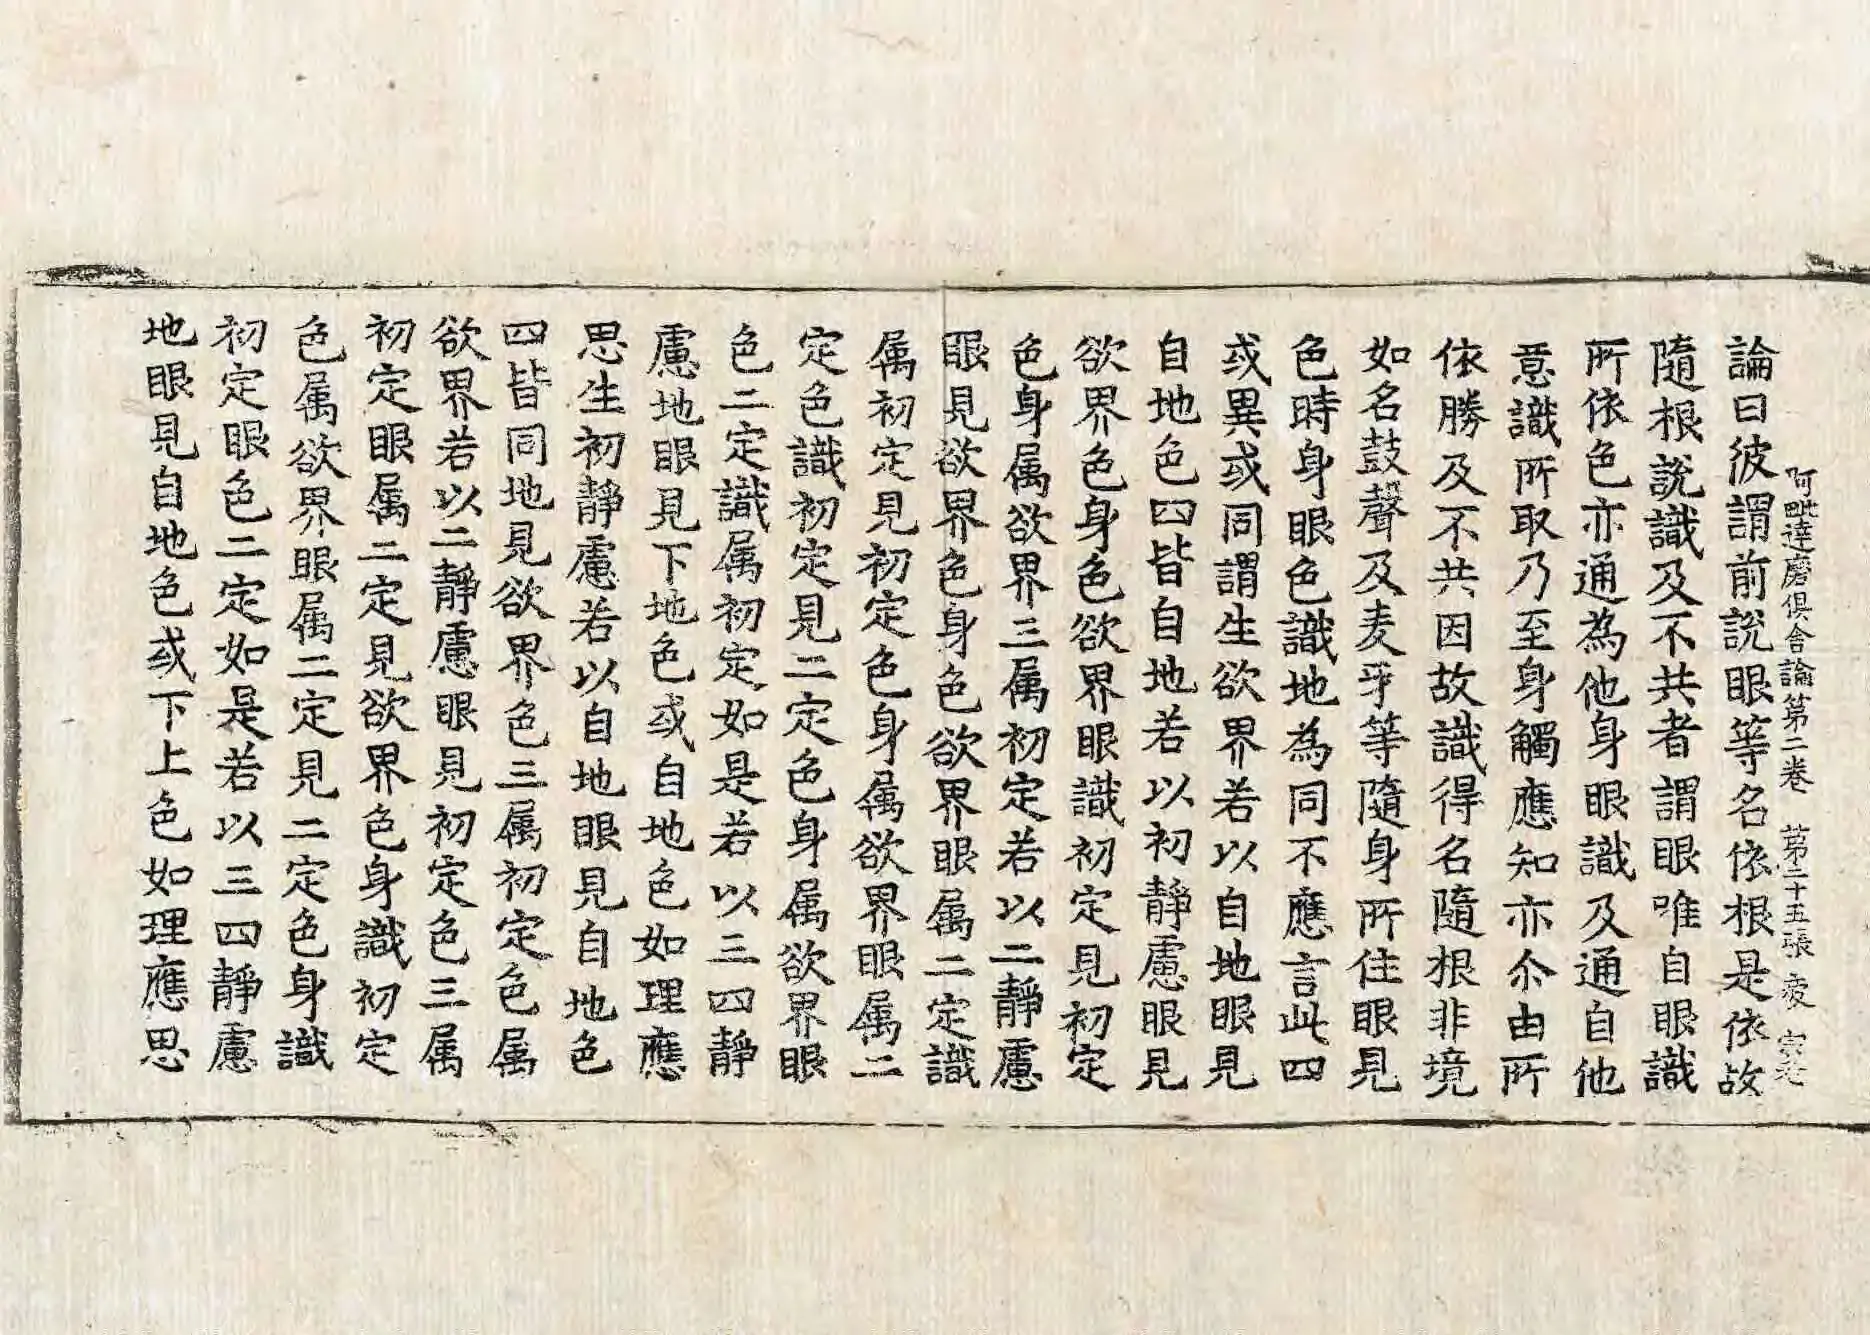 阿毗達磨俱舍論第二卷 苐二十五張 疲
論曰彼謂前說眼等名依根是依故
隨根說識及不共者謂眼唯自眼識
所依色亦通為他身眼識及通自他
意識所取乃至身觸應知亦尒由所
依勝及不共因故識得名隨根非境
如名鼓聲及麦牙等隨身所住眼見
色時身眼色識地為同不應言此四
或異或同謂生欲界若以自地眼見
自地色四皆自地若以初靜慮眼見
欲界色身色欲界眼識初定見初定
色身属欲界三属初定若以二靜慮
眼見欲界色身色欲界眼属二定識
属初定見初定色身属欲界眼属二
定色識初定見二定色身属欲界眼
色二定識属初定如是若以三四靜
慮地眼見下地色或自地色如理應
思生初靜慮若以自地眼見自地色
四皆同地見欲界色三属初定色属
欲界若以二靜慮眼見初定色三属
初定眼属二定見欲界色身識初定
色属欲界眼属二定見二定色身識
初定眼色二定如是若以三四靜慮
地眼見自地色或下上色如理應思